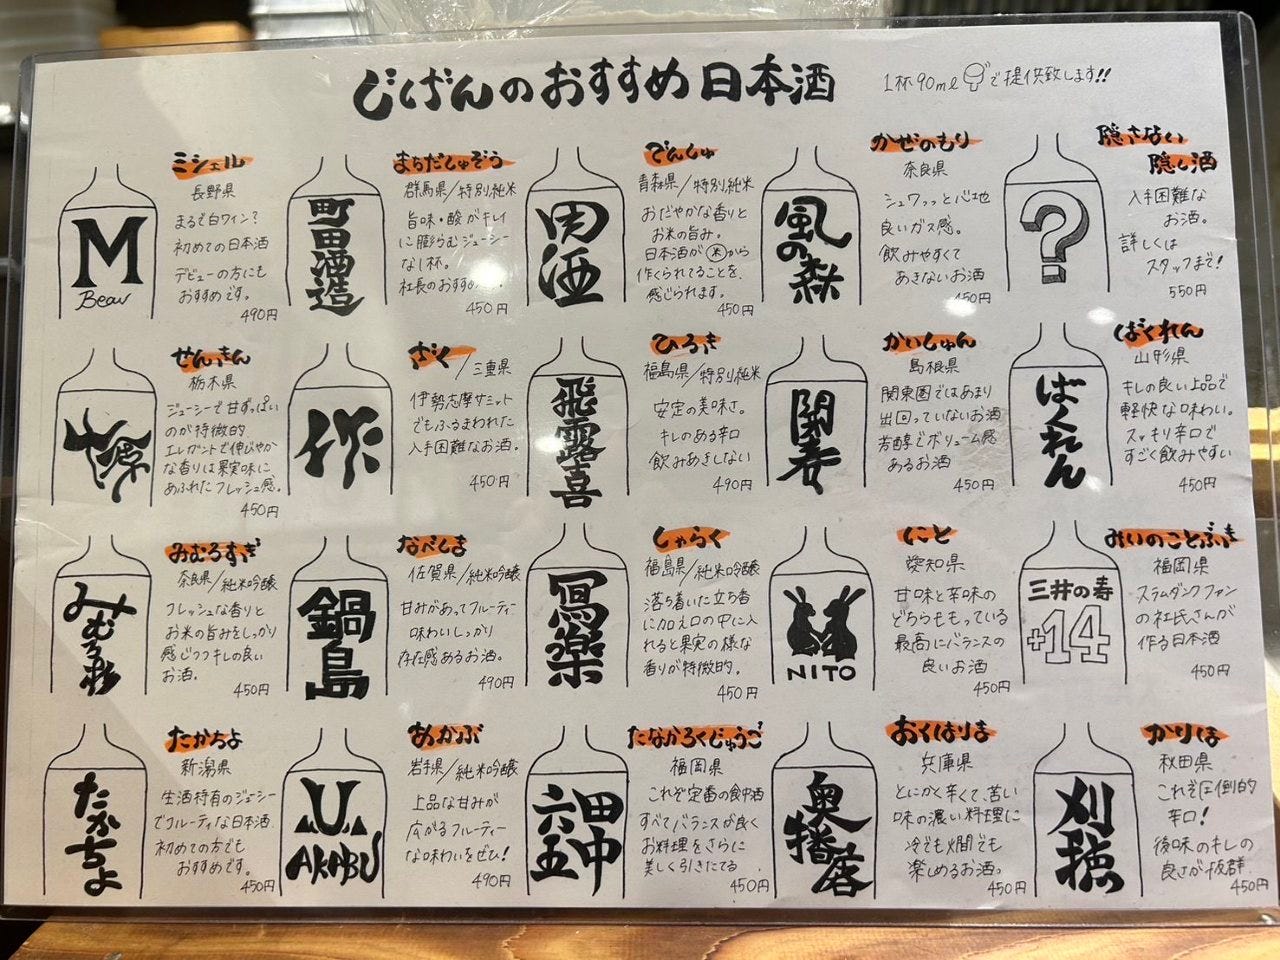 じげんのおすすめ日本酒
1杯90mlで提供致します!!
M
Beau
ミシェル
長野県
まるで白ワイン?
初めての日本酒
デビューの方にも
おすすめです。
490円
町田酒造
まちだしゅぞう
群馬県/特別純米
旨味・酸がキレイ
に膨らむジューシー
な1杯。
社長のおすすめ
450円
田酒
でんしゅ
青森県/特別純米
おだやかな香りと
お米の旨み。
日本酒が米から
作くられてることを、
感じられます。
450円
風の森
かぜのもり
奈良県
シュワっっと心地
良いガス感。
飲みやすくて
あきないお酒
450円
?
隠さない
隠し酒
入手困難な
お酒。
詳しくは
スタッフまで!
550円
仙禽
せんきん
栃木県
ジューシーで甘ずっぱい
のが特徴的
エレガントで伸びやか
な香りは果実味に
あふれたフレッシュ感。
450円
作
ざく/三重県
伊勢志摩サミット
でもふるまわれた
入手困難なお酒。
450円
飛露喜
ひろき
福島県/特別純米
安定の美味さ。
キレのある辛口
飲みあきしない
490円
開春
かいしゅん
島根県
関東圏ではあまり
出回っていないお酒
芳醇でボリューム感
あるお酒
450円
ばくれん
ばくれん
山形県
キレの良い上品で
軽快な味わい。
スッキリ辛口で
すごく飲みやすい
450円
みむろ杉
みむろすぎ
奈良県/純米吟醸
フレッシュな香りと
お米の旨みをしっかり
感じつつキレの良い
お酒.
450円
鍋島
なべしま
佐賀県/純米吟醸
甘みがあってフルーティー
味わいしっかり
存在感あるお酒。
490円
冩楽
しゃらく
福島県/純米吟醸
落ち着いた立ち香
に加え口の中に入
れると果実の様な
香りが特徴的.
450円
NITO
にと
愛知県
甘味と辛味の
どちらももっている
最高にバランスの
良いお酒
450円
三井の寿
+14
みいのことぶき
福岡県
スラムダンクファン
の杜氏さんが
作る日本酒
450円
たかちよ
たかちよ
新潟県
生酒特有のジューシー
でフルーティな日本酒.
初めての方でも
おすすめです。
450円
AKABU
あかぶ
岩手県/純米吟醸
上品な甘みが
広がるフルーティー
な味わいをぜひ!
490円
田中
六五
たなかろくじゅうご
福岡県
これぞ定番の食中酒
すべてバランスが良く
お料理をさらに
美しく引きたてる.
450円
奥播磨
おくはりま
兵庫県
とにかく辛くて、苦い
味の濃い料理に
冷でも燗でも
楽しめるお酒。
450円
刈穂
かりほ
秋田県
これぞ圧倒的
辛口!
後味のキレの
良さが抜群.
450円